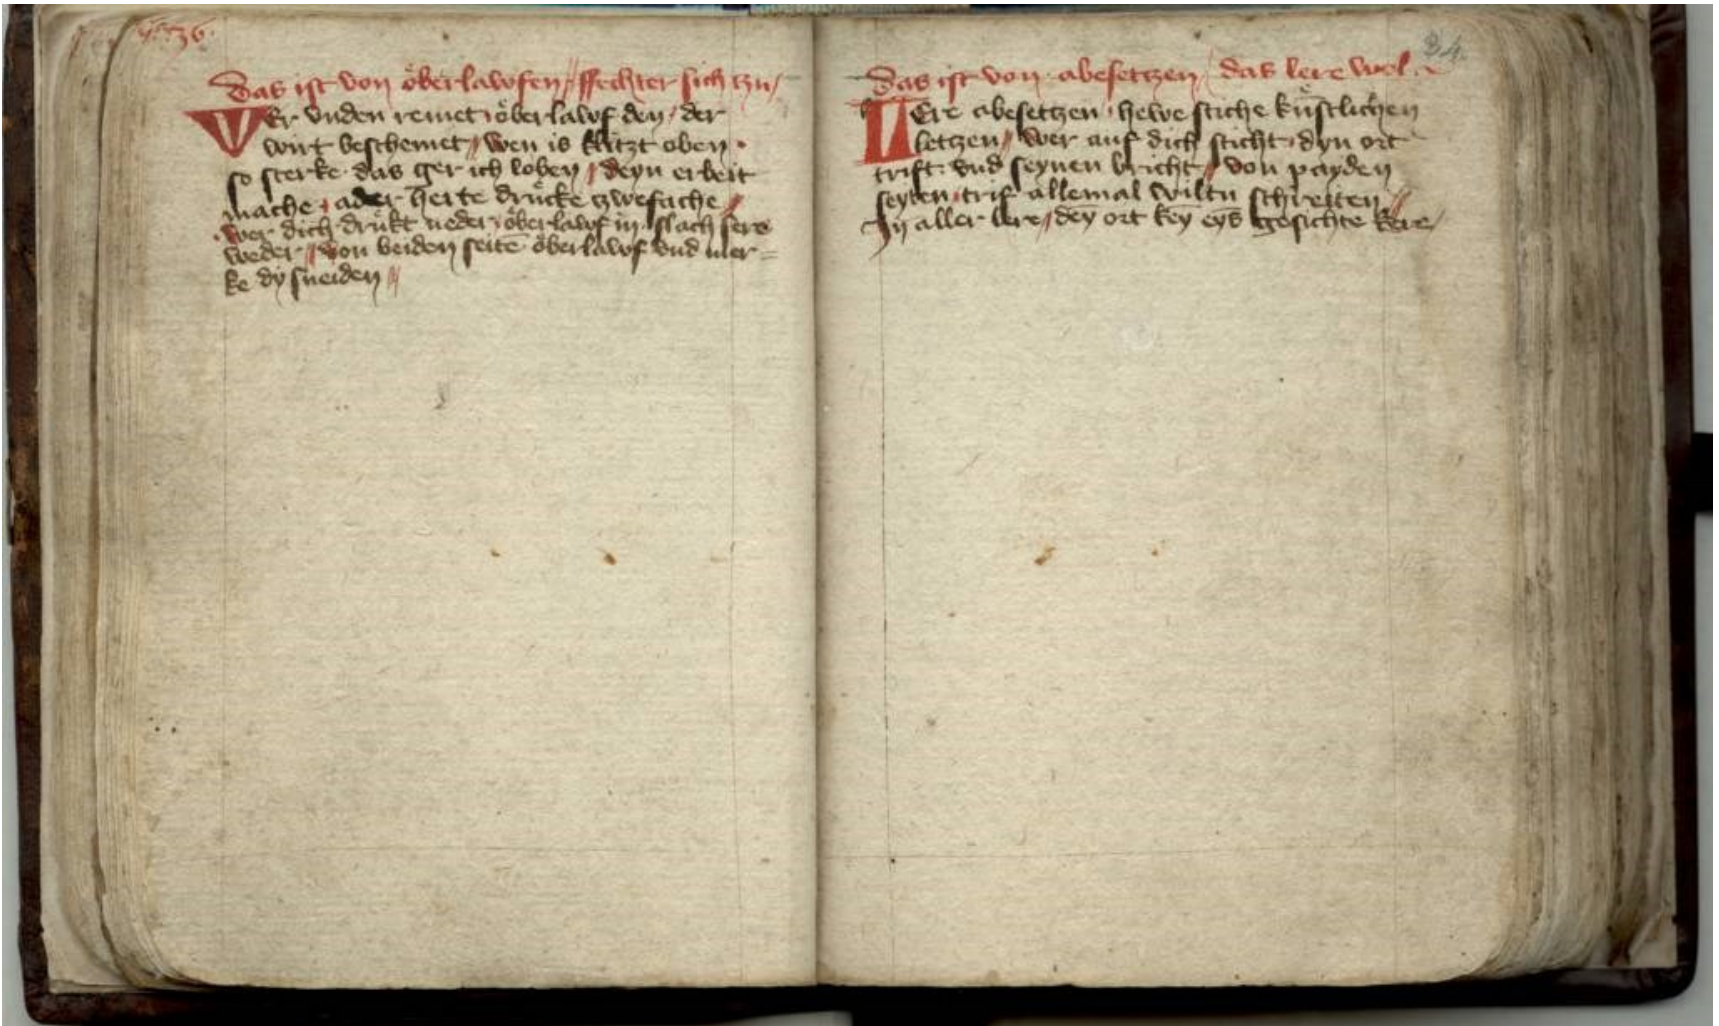 36.
Das ist von öberlawfen // ffechter sich tzu /
WEr unden remet öberlawf den / der
wirt beschemet // wen is klitzt oben
so sterke das ger ich loben // deyn erbeit
mache / ader herte drücke zwefache //
wer dich drükt neder öberlawf in slach sere
weder // von beiden seite öberlawf vnd mer=
ke dy sneiden //
34.
Das ist von abesetzen / das lere wol
LEre abesetzen hewe stiche kunstlichen
letzen // Wer auf dich sticht dyn ort
trift vnd seynen bricht // von payden
seyten trif allemal wiltu schreiten //
In aller lere / dey ort key eys gesichte kere /